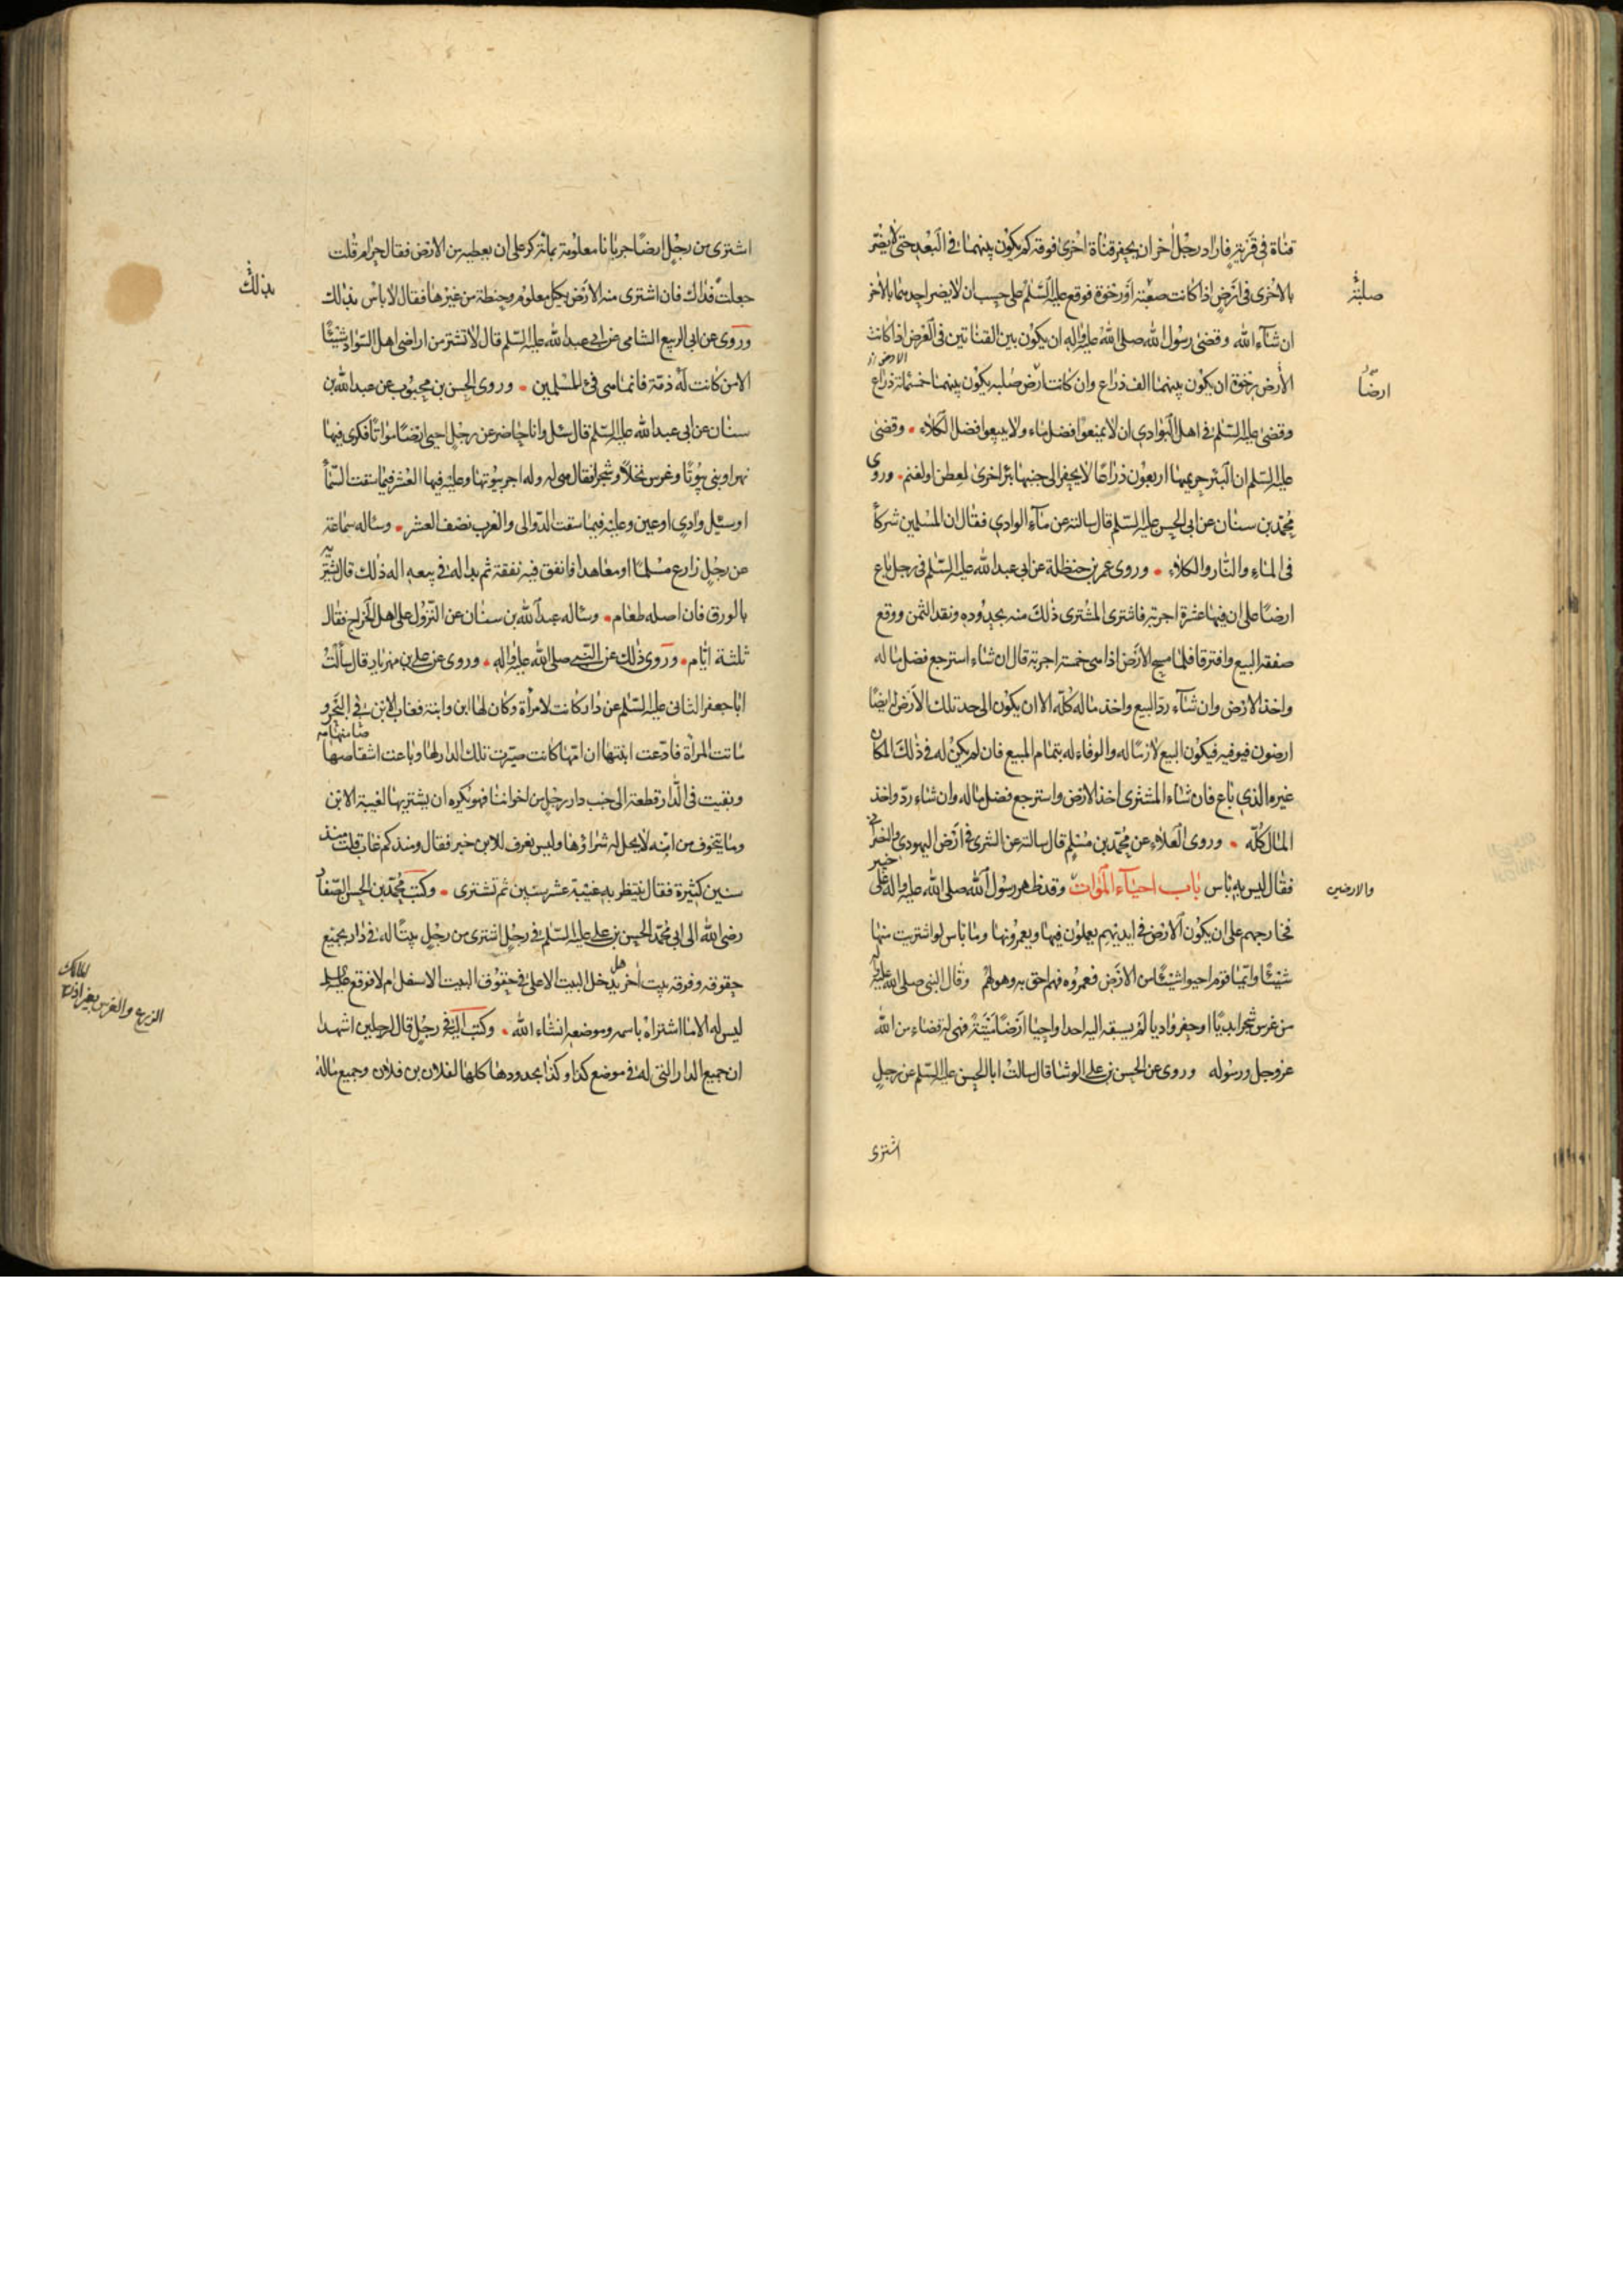 قناة في قرية فاراد رجل آخر ان يحفر قناة اخرى فوقه كم يكون بينهما في البعد حتى لا يضر
بالاخرى في ارض اذا كانت صعبة او رخوة فوقع عليه السلم على حسب ان لا يضر احديهما بالاخر
صلبة
ان شآء الله وقضى رسول الله صلى الله عليه واله ان يكون بين القناتين في العرض اذا كانت
الارض رخوة ان يكون بينهما الف ذراع وان كانت ارض صلبه يكون بينهما خمسمائة ذراع
الارض
ارضاً
وقضى عليه السلم في اهل البوادي ان لا يمنعوا فضل ماء ولا يبيعوا فضل الكلاء وقضى
عليه السلم ان البئر حريمها اربعون ذراعا لا يحفر الى جنبها بئر اخرى لعطن او لغنم وروى
محمد بن سنان عن ابي الحسن عليه السلم قال سالته عن مآء الوادي فقال ان المسلمين شركآ
في الماء والنار والكلاء وروى عمر بن حنظلة عن ابي عبد الله عليه السلم في رجل باع
ارضا على ان فيها عشرة اجربة فاشترى المشترى ذلك منه بحدوده ونقد الثمن ووقع
صفقه البيع وافترقا فلما مسح الارض اذا هي خمسة اجربة قال ان شاء استرجع فضل ماله
واخذ الارض وان شآء رد البيع واخذ ماله كله الا ان يكون الى حد تلك الارض له ايضا
ارضون فيوفيه فيكون البيع لازما له والوفاء له بتمام المبيع فان لم يكن له في ذلك المكان
غير الذي باع فان شاء المشترى اخذ الارض واسترجع فضل ماله وان شاء رد واخذ
المال كله وروى العلاء عن محمد بن مسلم قال سالته عن الشرى في ارض اليهودي والنصراني
فقال ليس به باس باب احيآء الموات وقد ظهر رسول الله صلى الله عليه واله على
خيبر
والارضين
فخارجهم على ان يكون الارض في ايديهم يعملون فيها ويعمرونها وما باس لو اشتريت منها
شيئا وايما قوم احيوا شيئا من الارض فعمروه فهم احق به وهو لهم وقال النبي صلى الله عليه واله
من غرس شجرا بديا او حفر واديا لم يسبقه اليه احد او احيا ارضا ميتة فهي له قضاء من الله
عز وجل ورسوله وروى عن الحسن بن علي الوشا قال سالت ابا الحسن عليه السلم عن رجل
اشترى
اشترى من رجل ارضا جربانا معلومة بمائة كر على ان يعطيه من الارض فقال حرام قلت
جعلت فداك فان اشترى منه الارض بكيل معلوم وحنطة من غيرها فقال لا باس بذلك
بذلك
وروى عن ابي الربيع الشامي عن ابي عبد الله عليه السلم قال لا تشتر من اراضي اهل السواد شيئا
الا من كانت له ذمة فانما هي فئ للمسلمين وروى الحسن بن محبوب عن عبد الله بن
سنان عن ابي عبد الله عليه السلم قال سئل وانا حاضر عن رجل احيى ارضا مواتا فكرى فيها
نهرا وبنى بيوتا وغرس نخلا وشجرا فقال هي له وله اجر بيوتها وعليه فيها العشر فيما سقت السمآ
او سيل وادي او عين وعليه فيما سقت الدوالي والغرب نصف العشر وساله سماعة
عن رجل زارع مسلما او معاهدا فانفق فيه نفقة ثم بدا له في بيعه اله ذلك قال يشتريه
بالورق فان اصله طعام وساله عبد الله بن سنان عن النزول على اهل الخراج فقال
ثلثة ايام وروى ذلك عن النبي صلى الله عليه واله وروى عن علي بن مهزيار قال سألت
ابا جعفر الثاني عليه السلم عن دار كانت لامرأة وكان لها ابن وابنة فغاب الابن في البحر و
ماتت المرأة فادعت ابنتها ان امها كانت صيرت تلك الدار لها وباعت اشقاصها
وبقيت في الدار قطعة الى جنب دار رجل من اخواننا فهو يكره ان يشتريها لغيبة الابن
وما يتخوف من انه لا يحل له شراؤها وليس يعرف للابن خبر فقال ومنذ كم غاب قلت منذ
سنين كثيرة فقال ينتظر به غيبة عشر سنين ثم تشترى وكتب محمد بن الحسن الصفار
رضي الله الى ابي محمد الحسن بن علي عليه السلم في رجل اشترى من رجل بيتا له في دار بجميع
حقوقه وفوقه بيت آخر هل يدخل البيت الاعلى في حقوق البيت الاسفل ام لا فوقع عليه السلم
ليس له الا ما اشتراه باسمه وموضعه انشاء الله وكتب اليه في رجل قال لرجلين اشهدا
ان جميع الدار التي له في موضع كذا وكذا بحدودها كلها لفلان بن فلان وجميع ماله
الزرع والغرس بغير اذن
المالك